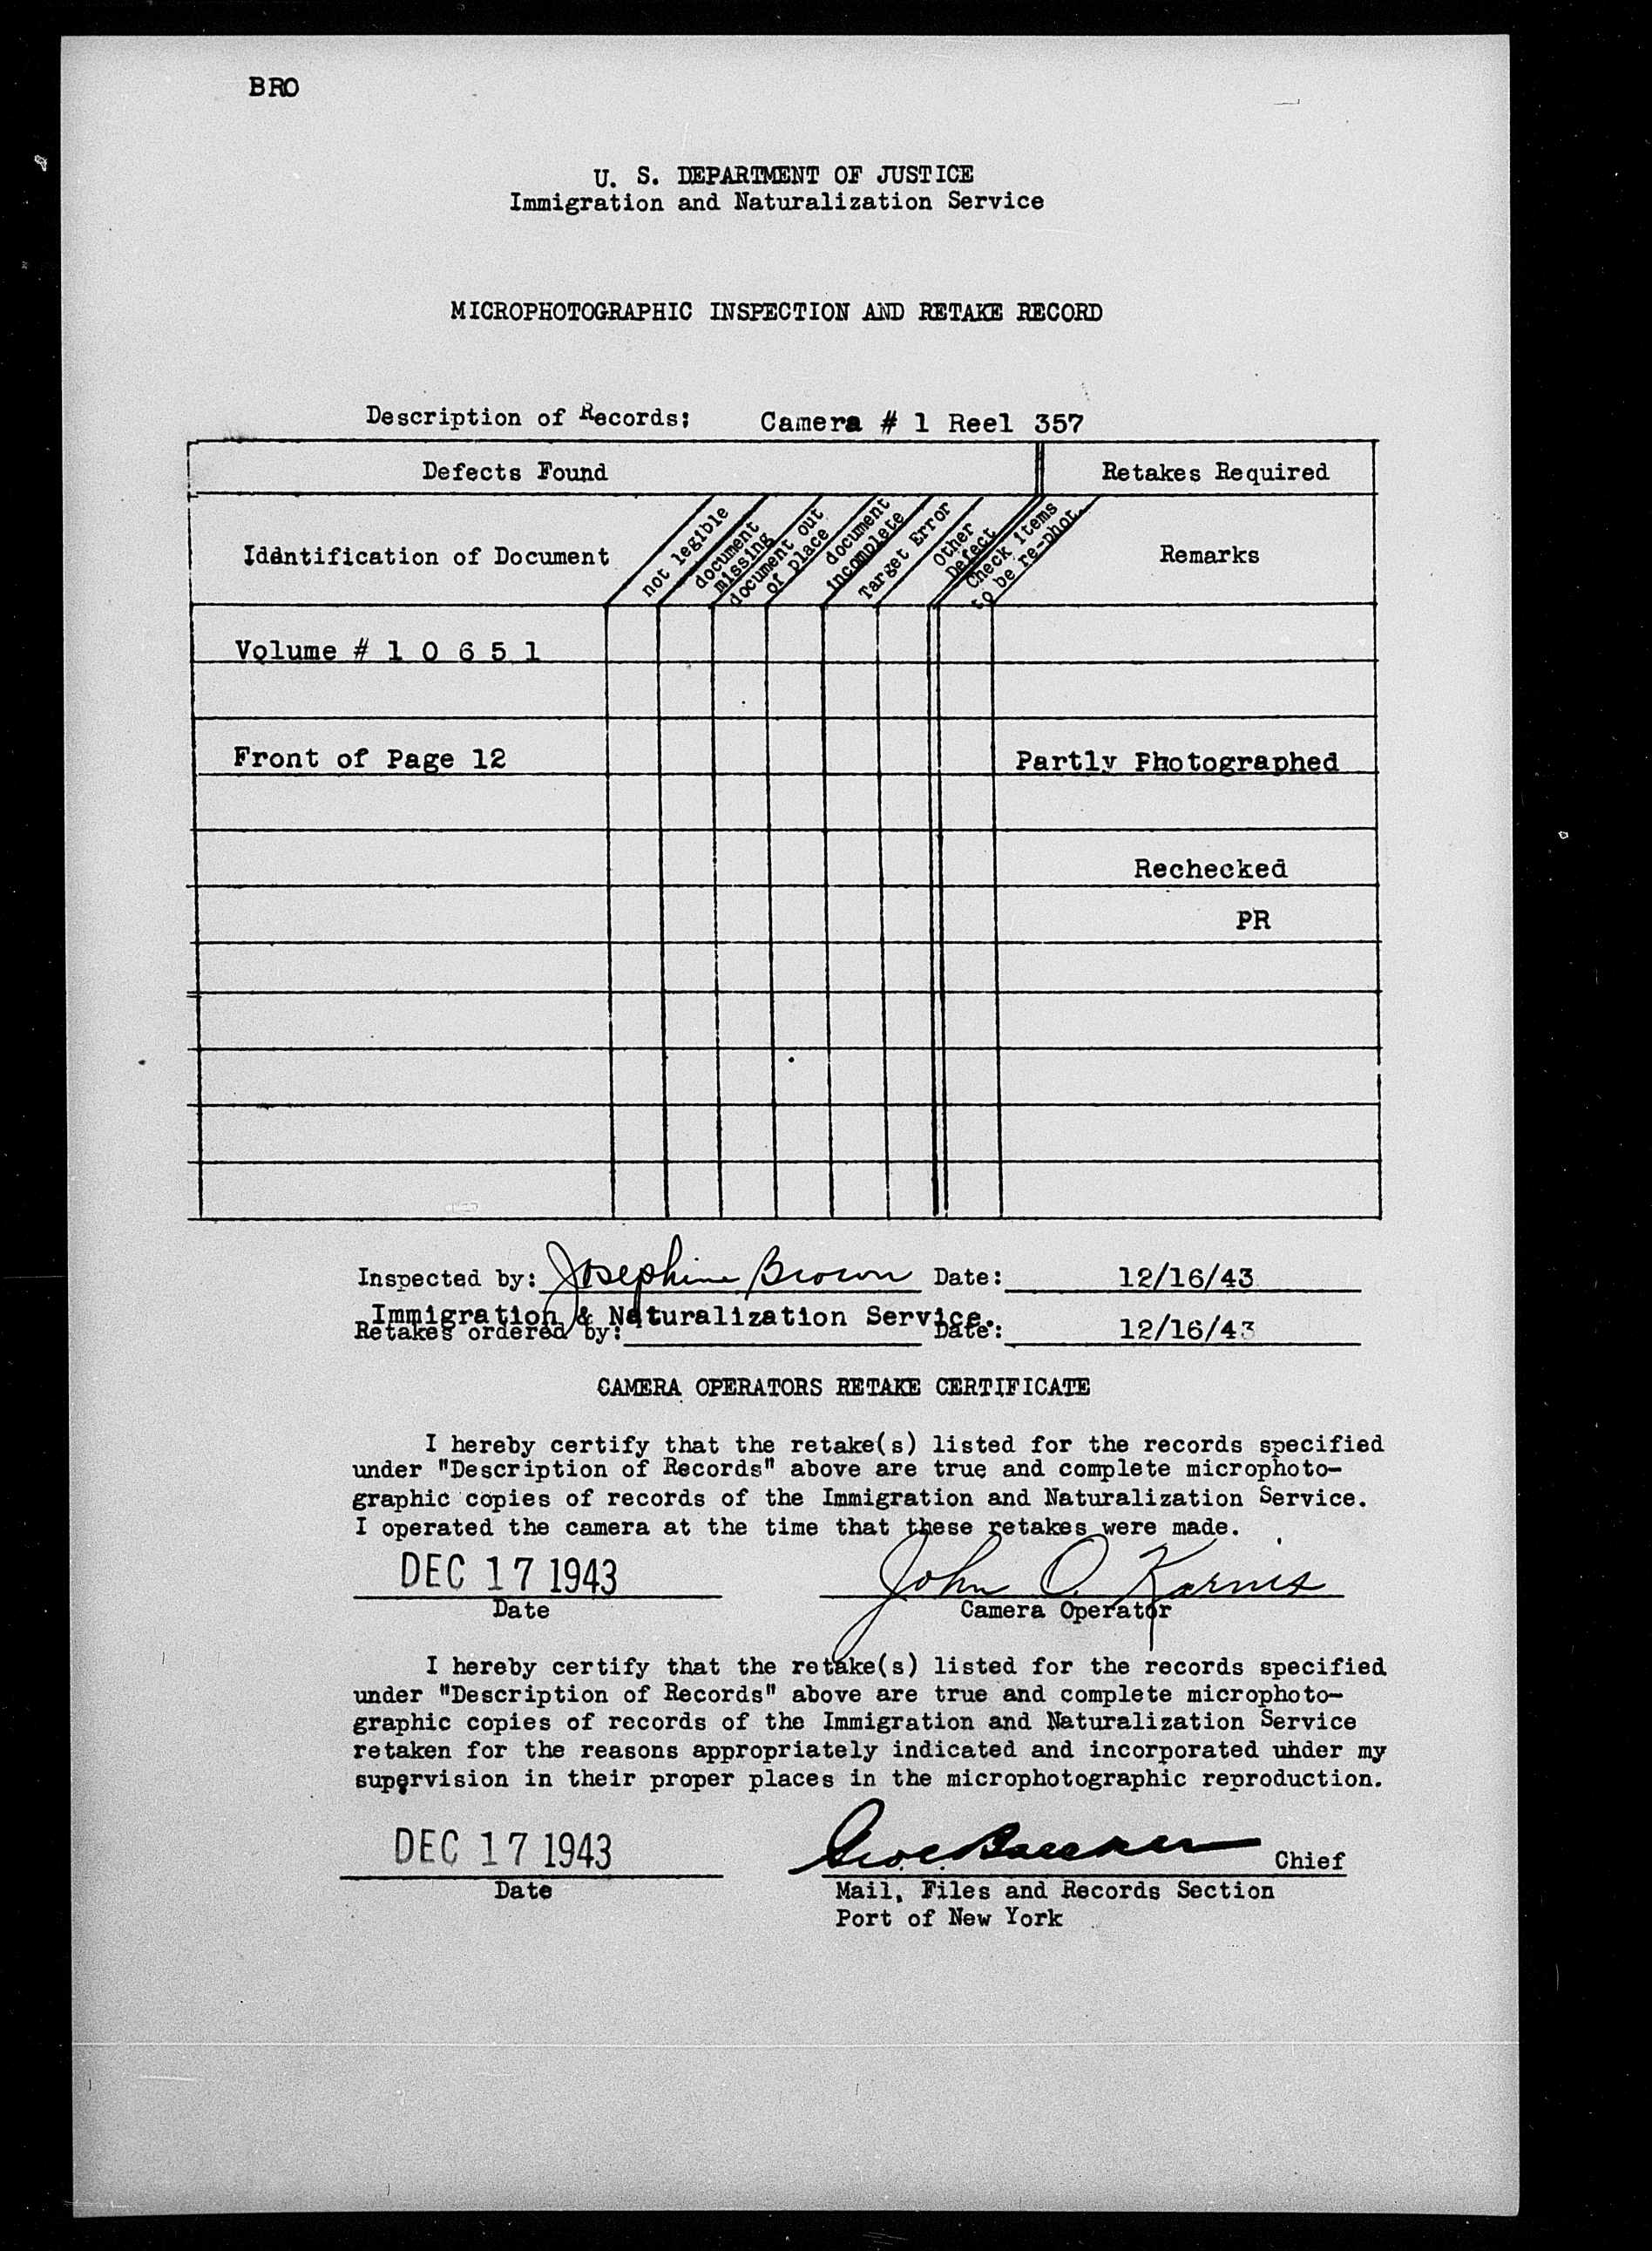 BRO
U. S. DEPARTMENT OF JUSTICE
Immigration and Naturalization Service
MICROPHOTOGRAPHIC INSPECTION AND RETAKE RECORD
Description of Records: Camera # 1 Reel 357
Defects Found Retakes Required
Idantification of Document
not legible
document missing
document out of place
document incomplete
Target Error
Other Defect
Check items to be re-phot.
Remarks
Volume # 1 0 6 5 1
Front of Page 12 Partly Photographed
Rechecked
PR
Inspected by: Josephine Brown Date: 12/16/43
Immigration & Naturalization Service.
Retakes ordered by: Date: 12/16/43
CAMERA OPERATORS RETAKE CERTIFICATE
I hereby certify that the retake(s) listed for the records specified
under "Description of Records" above are true and complete microphoto-
graphic copies of records of the Immigration and Naturalization Service.
I operated the camera at the time that these retakes were made.
DEC 17 1943 John O. Karnis
Date Camera Operator
I hereby certify that the retake(s) listed for the records specified
under "Description of Records" above are true and complete microphoto-
graphic copies of records of the Immigration and Naturalization Service
retaken for the reasons appropriately indicated and incorporated uhder my
supervision in their proper places in the microphotographic reproduction.
DEC 17 1943 Chief
Date Mail, Files and Records Section
Port of New York